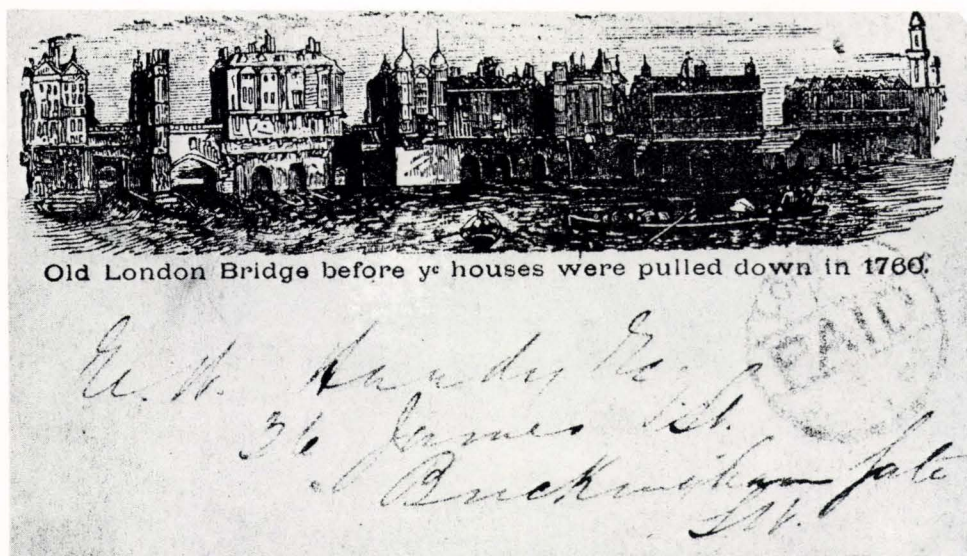 Old London Bridge before yᵉ houses were pulled down in 1760.
PAID
Handy Esq
36 James St.
Buckingham Gate
S.W.